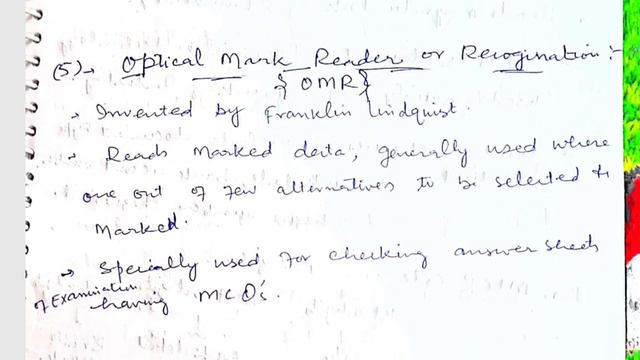 (5)→ Optical Mark Reader or Recogination:-
{OMR}
→ Invented by Franklin Lindquist.
→ Reads Marked data, generally used where
one out of few alternatives to be selected &
Marked.
→ Specially used for checking answer sheets
of Examination having MCQ's.